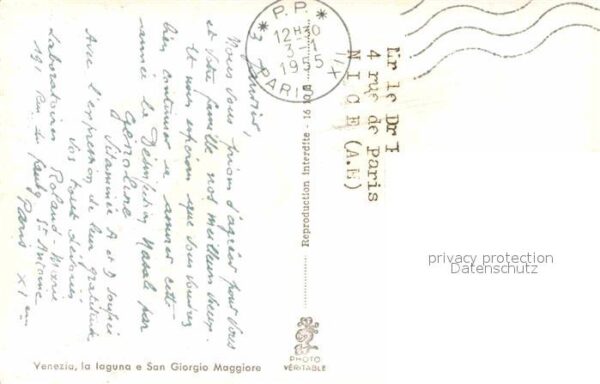 3 Janvier,
Nous vous prions d'agréer pour vous
et votre famille nos meilleurs vœux.
Et nous espérons que vous voudrez
bien continuer à assurer cette
année la Désinfection Nasale par
Génoline
Vitaminée A et D
Avec l'expression de leur gratitude
Vos tout dévoués
Laboratoires Roland-Marie
191 Rue du Faubg St Antoine
Paris XI em
P.P.
12H30
3-1
1955
PARIS XII
Mr le Dr I
4 rue de Paris
NICE (A.M)
Reproduction interdite - 16
PHOTO
VÉRITABLE
Venezia, la laguna e San Giorgio Maggiore
privacy protection
Datenschutz